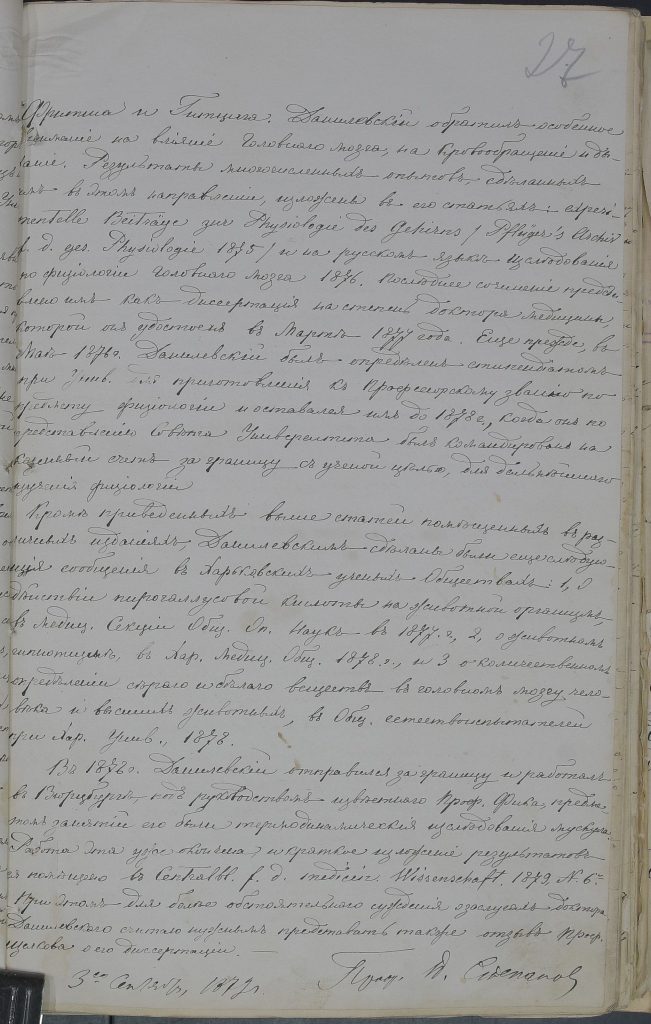 27
Фритша и Гитцига. Данилевскій обратилъ особенное
вниманіе на вліяніе головнаго мозга, на кровообращеніе и ды-
ханіе. Результаты многочисленныхъ опытовъ, сдѣланныхъ
имъ въ этомъ направленіи, изложены въ его статьяхъ: experi-
mentelle Beiträge zur Physiologie des Gehirns / Pflüger's Archiv
f. d. ges. Physiologie 1875 / и на русскомъ языкѣ изслѣдованія
по физіологіи головнаго мозга 1876. Послѣднее сочиненіе представ-
влено имъ какъ диссертація на степень доктора медицины,
которой онъ удостоенъ въ Мартѣ 1877 года. Еще прежде, въ
Маѣ 1876 г. Данилевскій былъ опредѣленъ стипендіатомъ
при Унив. для приготовленія къ профессорскому званію по
предмету физіологіи и оставался имъ до 1878 г., когда онъ по
представленію Совѣта Университета былъ командированъ на
казенный счетъ за границу съ ученой цѣлью, для дальнѣйшаго
изученія физіологіи
Кромѣ приведенныхъ выше статей помѣщенныхъ въ раз-
личныхъ изданіяхъ, Данилевскимъ сдѣланы были еще слѣдую-
щія сообщенія въ Харьковскихъ ученыхъ Обществахъ: 1, О
дѣйствіи пирогаллусовой кислоты на животной организмъ,
въ Медиц. Секціи Общ. Оп. Наукъ въ 1877 г., 2, о животномъ
гипнотизмѣ, въ Хар. Медиц. Общ. 1878 г., и 3 о количественномъ
опредѣленіи сѣраго и бѣлаго веществъ въ головномъ мозгу чело-
вѣка и высшихъ животныхъ, въ Общ. естествоиспытателей
при Хар. Унив., 1878.
Въ 1878 г. Данилевскій отправился за границу и работалъ
въ Вюрцбургѣ, подъ руководствомъ извѣстнаго Проф. Фика, предме-
томъ занятій его были термодинамическія изслѣдованія мускула.
Работа эта уже окончена, и краткое изложеніе результатовъ
ея помѣщено въ Centralbl. f. d. medicin. Wissenschaft. 1879, N. 6.
При этомъ для болѣе обстоятельнаго сужденія о заслугахъ доктора
Данилевского считаю нужнымъ представить также отзывъ Проф.
Щелкова о его диссертаціи. —
3го Сентября, 1879 г. Проф. П. Степановъ